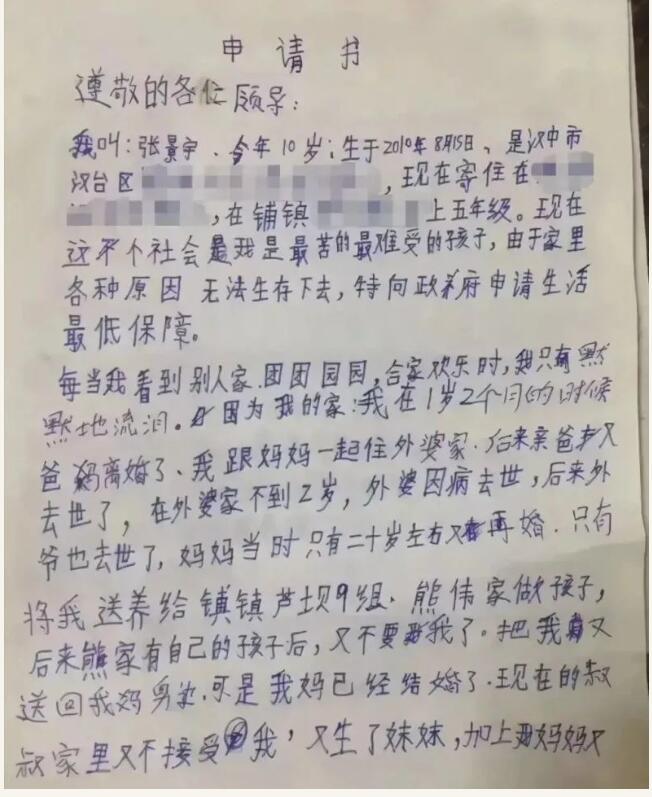 申请书
遵敬的各位领导：
我叫：张景宇．今年10岁；生于2010年8月15日、是汉中市
汉台区，现在寄住在
，在铺镇上五年级。现在
这个社会我是最苦的最难受的孩子，由于家里
各种原因无法生存下去，特向政府申请生活
最低保障。
每当我看到别人家．团团园园，合家欢乐时，我只有默
默地流泪。因为我的家：我在1岁2个月的时候
爸妈离婚了、我跟妈妈一起住外婆家．后来亲爸又
去世了，在外婆家不到2岁，外婆因病去世，后来外
爷也去世了，妈妈当时只有二十岁左右又再婚．只有
将我送养给铺镇芦坝9组．熊伟家做孩子，
后来熊家有自己的孩子后，又不要我了。把我又
送回我妈身边．可是我妈已经结婚了．现在的叔
叔家里又不接受我，又生了妹妹，加上我妈妈又